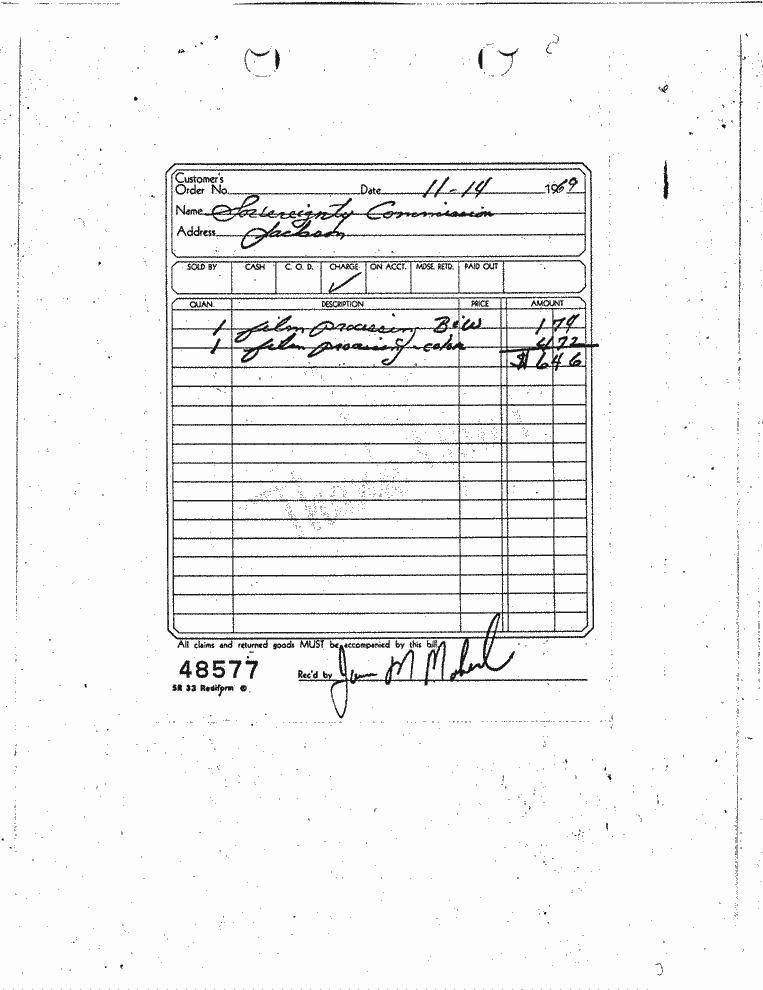 Customer's
Order No. Date 11-14 1969
Name Sovereignty Commission
Address Jackson
SOLD BY CASH C. O. D. CHARGE ON ACCT. MDSE. RETD. PAID OUT
✓
QUAN. DESCRIPTION PRICE AMOUNT
1 film processing B&W 1 74
1 film processing - color 4 72
$ 6 46
Thank You!
All claims and returned goods MUST be accompanied by this bill.
48577 Rec'd by
SR 33 Rediform ®